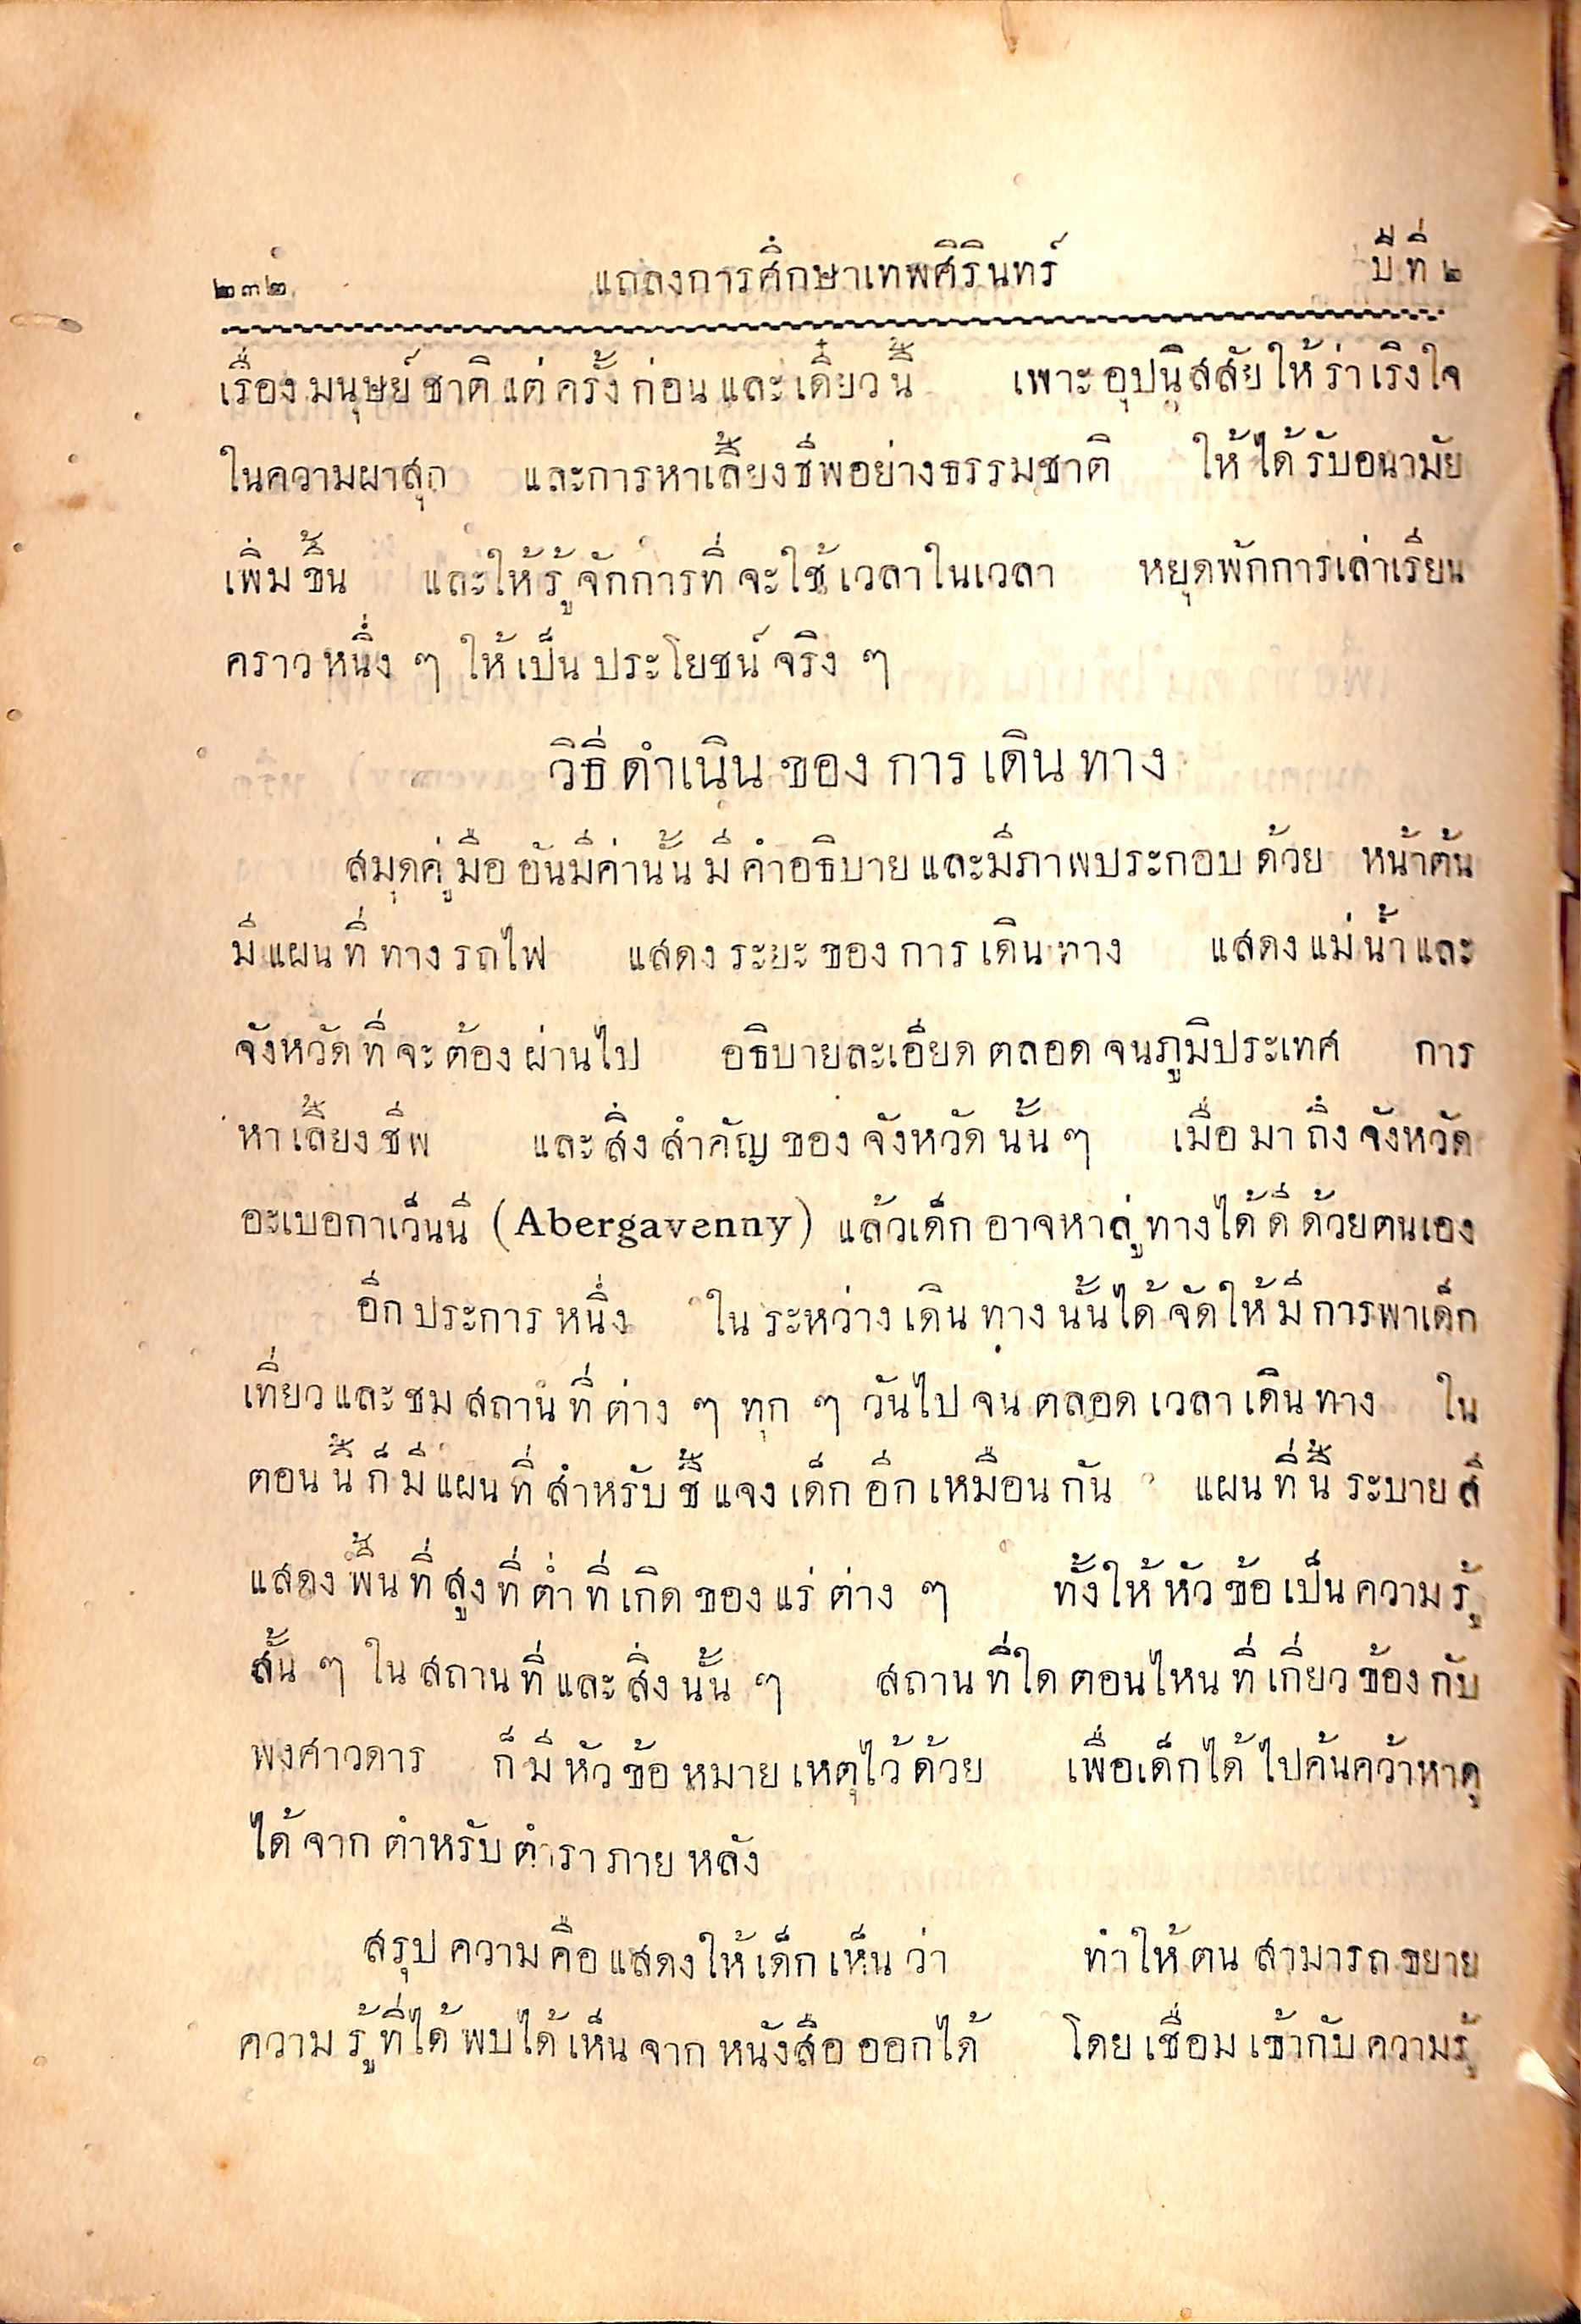 ๒๓๒ แถลงการศึกษาเทพศิรินทร์ ปีที่ ๒
เรื่องมนุษย์ชาติแต่ครั้งก่อนและเดี๋ยวนี้ เพาะอุปนิสสัยให้ร่าเริงใจ
ในความผาสุก และการหาเลี้ยงชีพอย่างธรรมชาติ ให้ได้รับอนามัย
เพิ่มขึ้น และให้รู้จักการที่จะใช้เวลาในเวลา หยุดพักการเล่าเรียน
คราวหนึ่ง ๆ ให้เป็นประโยชน์จริง ๆ
วิธีดำเนินของการเดินทาง
สมุดคู่มืออันมีค่านั้นมีคำอธิบายและมีภาพประกอบด้วย หน้าต้น
มีแผนที่ทางรถไฟ แสดงระยะของการเดินทาง แสดงแม่น้ำและ
จังหวัดที่จะต้องผ่านไป อธิบายละเอียดตลอดจนภูมิประเทศ การ
หาเลี้ยงชีพ และสิ่งสำคัญของจังหวัดนั้นๆ เมื่อมาถึงจังหวัด
อะเบอกาเว็นนี (Abergavenny) แล้วเด็กอาจหาลู่ทางได้ดีด้วยตนเอง
อีกประการหนึ่ง ในระหว่างเดินทางนั้นได้จัดให้มีการพาเด็ก
เที่ยวและชมสถานที่ต่าง ๆ ทุก ๆ วันไปจนตลอดเวลาเดินทาง ใน
ตอนนี้ก็มีแผนที่สำหรับชี้แจงเด็กอีกเหมือนกัน แผนที่นี้ระบายสี
แสดงพื้นที่สูงที่ต่ำที่เกิดของแร่ต่าง ๆ ทั้งให้หัวข้อเป็นความรู้
สั้น ๆ ในสถานที่และสิ่งนั้น ๆ สถานที่ใดตอนไหนที่เกี่ยวข้องกับ
พงศาวดาร ก็มีหัวข้อหมายเหตุไว้ด้วย เพื่อเด็กได้ไปค้นคว้าหาดู
ได้จากตำหรับตำราภายหลัง
สรุปความคือแสดงให้เด็กเห็นว่า ทำให้ตนสามารถขยาย
ความรู้ที่ได้พบได้เห็นจากหนังสือออกได้ โดยเชื่อมเข้ากับความรู้